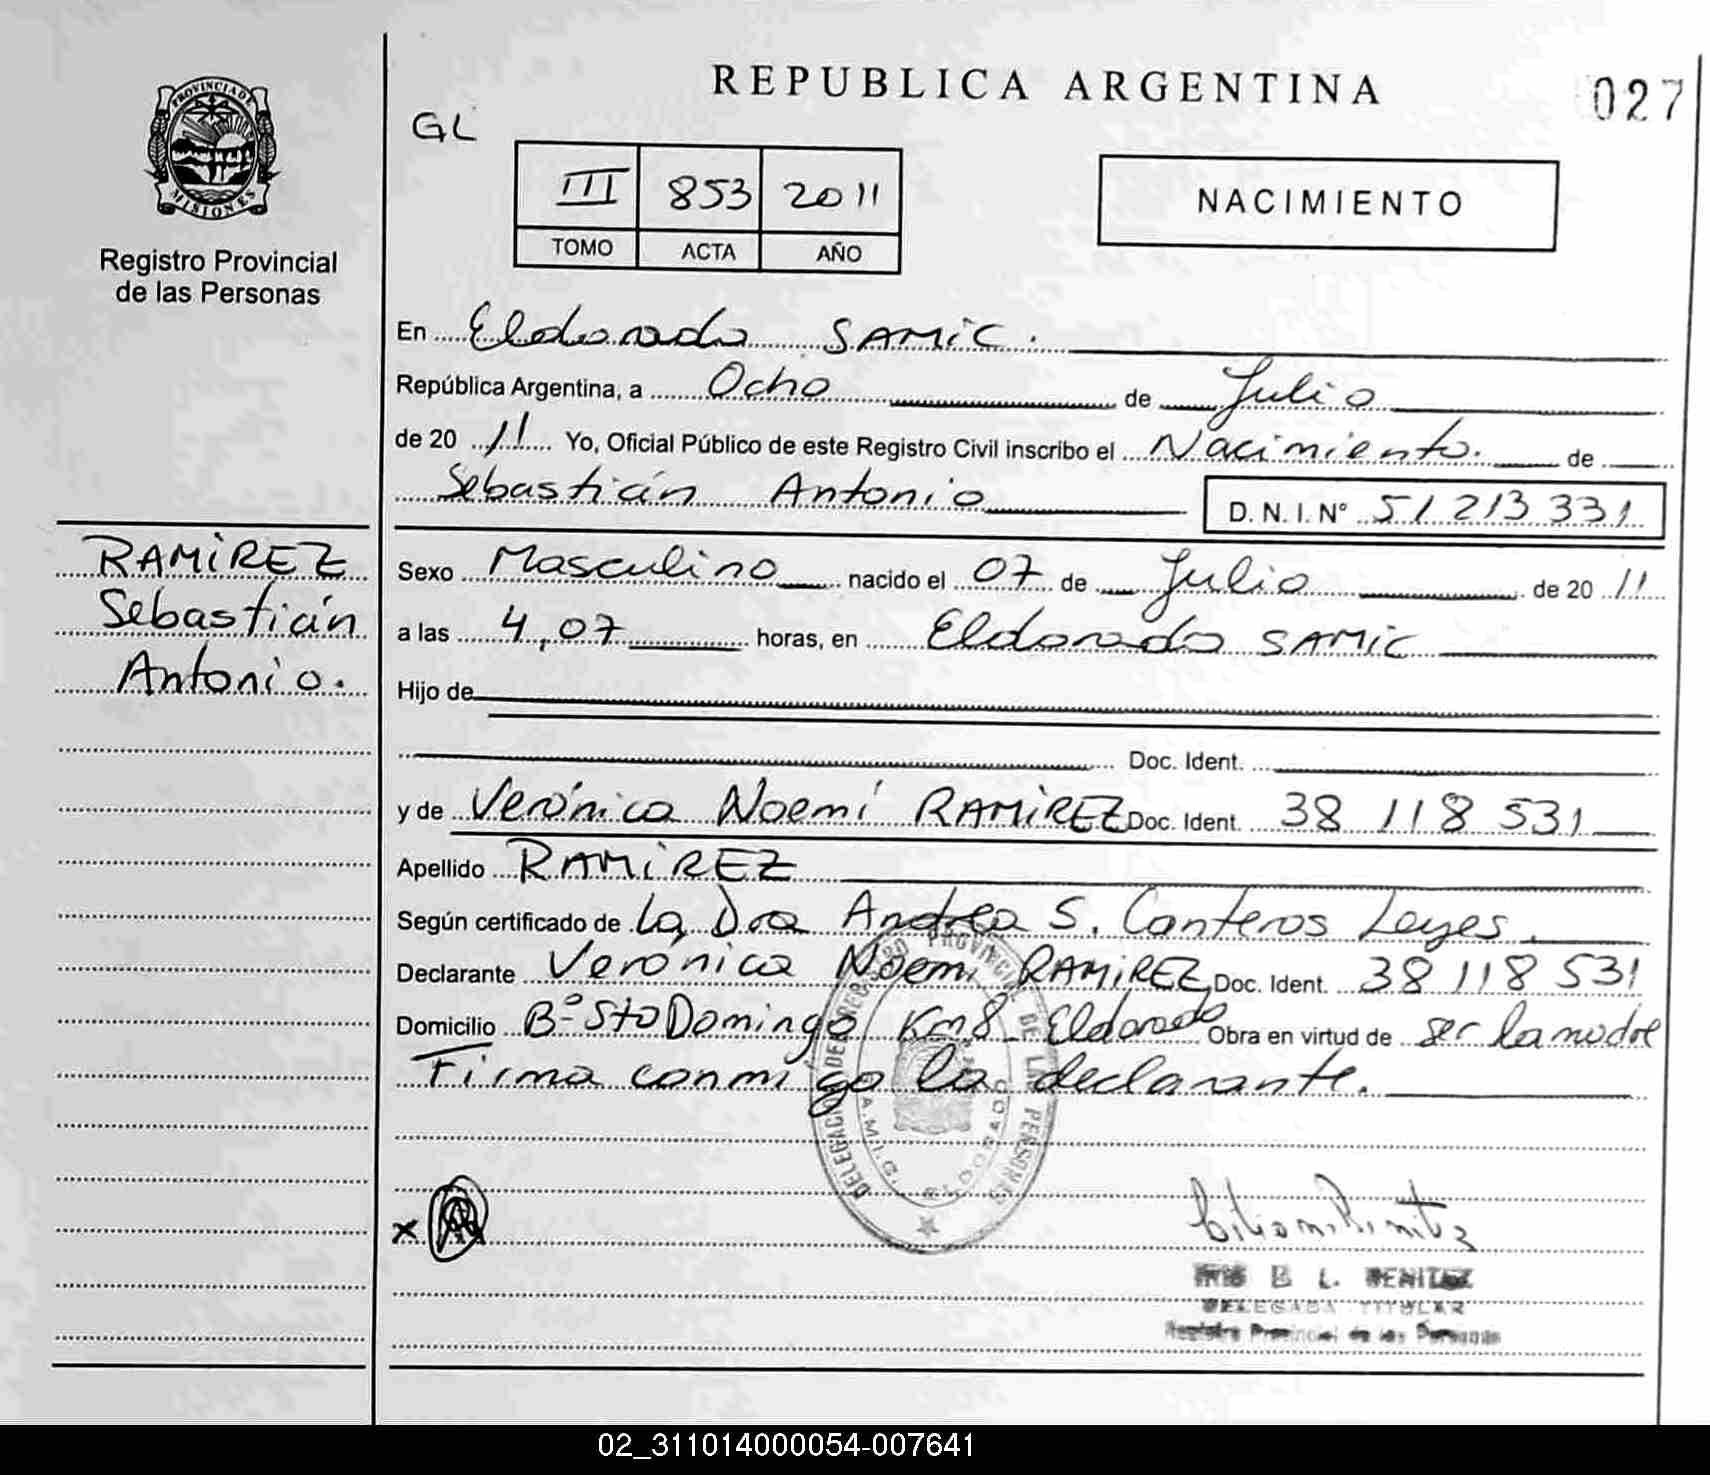 REPUBLICA ARGENTINA
027
GL
PROVINCIA DE
MISIONES
III 853 2011
TOMO ACTA AÑO
NACIMIENTO
Registro Provincial
de las Personas
En Eldorado SAMIC.
República Argentina, a Ocho de Julio
de 20 11 Yo, Oficial Público de este Registro Civil inscribo el Nacimiento. de
Sebastián Antonio D. N. I. N° 51 213 331
RAMIREZ
Sebastián
Antonio.
Sexo Masculino nacido el 07 de Julio de 20 11
a las 4,07 horas, en Eldorado SAMIC
Hijo de
Doc. Ident.
y de Verónica Noemí RAMIREZ Doc. Ident. 38 118 531
Apellido RAMIREZ
Según certificado de La Dra Andrea S. Canteros Leyes.
Declarante Verónica Noemí RAMIREZ Doc. Ident. 38 118 531
Domicilio B° Sto Domingo Km8 Eldorado Obra en virtud de ser la madre
Firma conmigo la declarante.
DELEGACION DE REGISTRO PROVINCIAL DE LAS PERSONAS
S.A.M.I.C. ELDORADO
x
B L. BENITEZ
DELEGADA TITULAR
Registro Provincial de las Personas
02_311014000054-007641